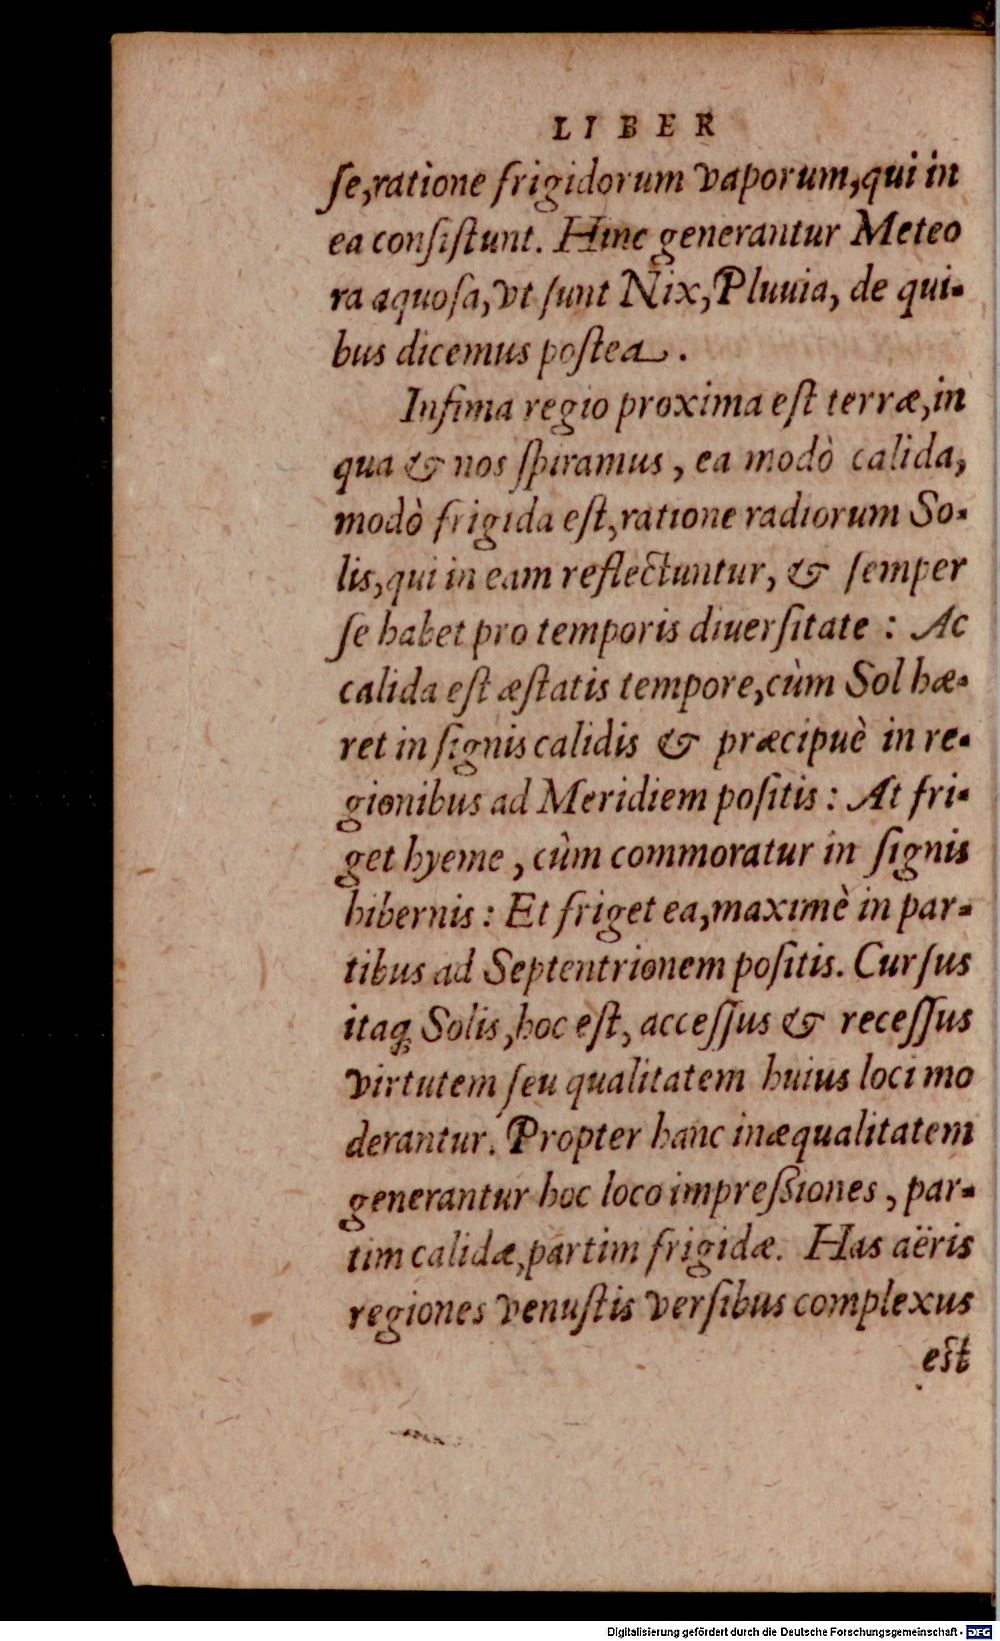 LIBER
ſe,ratione frigidorum vaporum,qui in
ea conſiſtunt. Hinc generantur Meteo
ra aquoſa,vt ſunt Nix,Pluuia, de qui-
bus dicemus poſtea.
Infima regio proxima eſt terræ,in
qua & nos ſpiramus, ea modò calida,
modò frigida eſt,ratione radiorum So-
lis,qui in eam reflectuntur, & ſemper
ſe habet pro temporis diuerſitate : Ac
calida eſt æſtatis tempore,cùm Sol hæ-
ret in ſignis calidis & præcipuè in re-
gionibus ad Meridiem poſitis : At fri-
get hyeme, cùm commoratur in ſignis
hibernis : Et friget ea,maximè in par-
tibus ad Septentrionem poſitis. Curſus
itaq; Solis,hoc eſt, acceſſus & receſſus
virtutem ſeu qualitatem huius loci mo
derantur. Propter hanc inæqualitatem
generantur hoc loco impreßiones, par-
tim calidæ,partim frigidæ. Has aëris
regiones venuſtis verſibus complexus
eſt
Digitalisierung gefördert durch die Deutsche Forschungsgemeinschaft - DFG